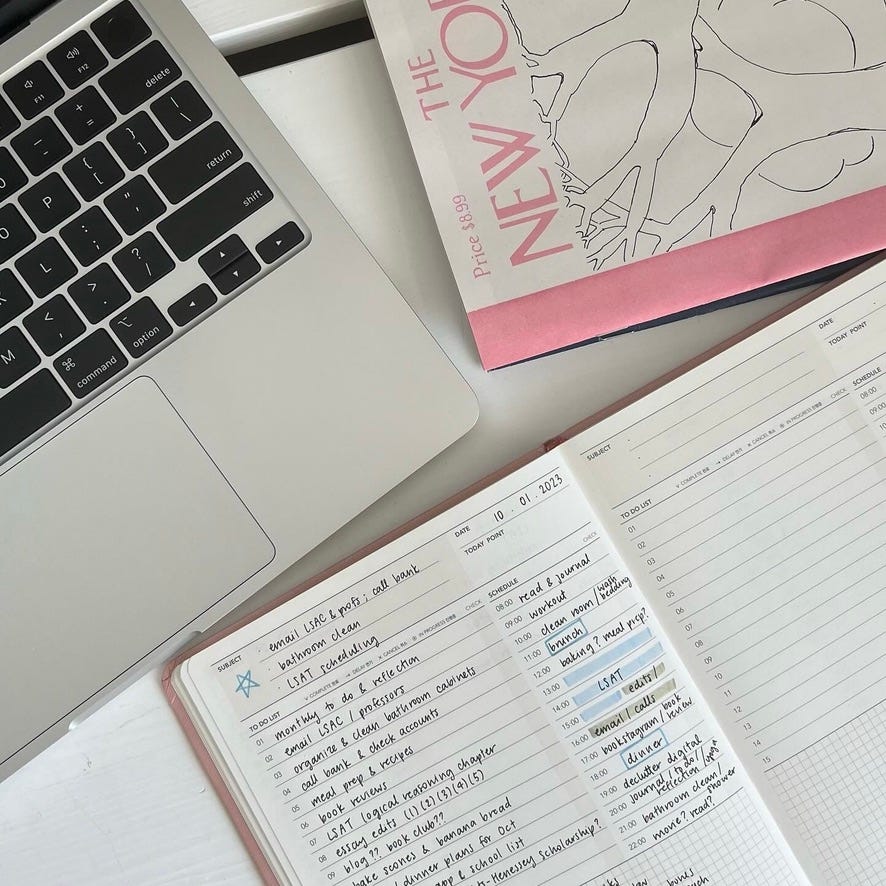 F11
F12
delete
+
=
{
[
}
]
|
\
return
P
:
;
"
'
shift
L
<
,
>
.
?
/
M
⌘
command
⌥
option
THE
NEW YO
Price $8.99
SUBJECT
email LSAC & profs; call bank
bathroom clean
LSAT scheduling
DATE 10 . 01 . 2023
TODAY POINT
CHECK
TO DO LIST
COMPLETE
DELAY
CANCEL
IN PROGRESS
CHECK
01 monthly to do & reflection
02 email LSAC / professors
03 organize & clean bathroom cabinets
04 call bank & check accounts
05 meal prep & recipes
06 book reviews
07 LSAT logical reasoning chapter
08 essay edits (1)(2)(3)(4)(5)
09 blog?? book club??
bake scones & banana bread
dinner plans for Oct
app & school list
-Hennessy Scholarship?
SCHEDULE
08:00 read & journal
09:00 workout
10:00 clean room / wash bedding
11:00 brunch
12:00 baking? meal prep?
13:00
14:00 LSAT
15:00 edits/
16:00 email / calls
17:00 bookstagram / book review
18:00 dinner
19:00 declutter digital
20:00 journal / to do / reflection / yoga
21:00 bathroom clean / shower
22:00 movie? read?
SUBJECT
DATE
TODAY POINT
TO DO LIST
COMPLETE
DELAY
CANCEL
IN PROGRESS
CHECK
SCHEDULE
08:00
09:00
01
02
03
04
05
06
07
08
09
10
11
12
13
14
15